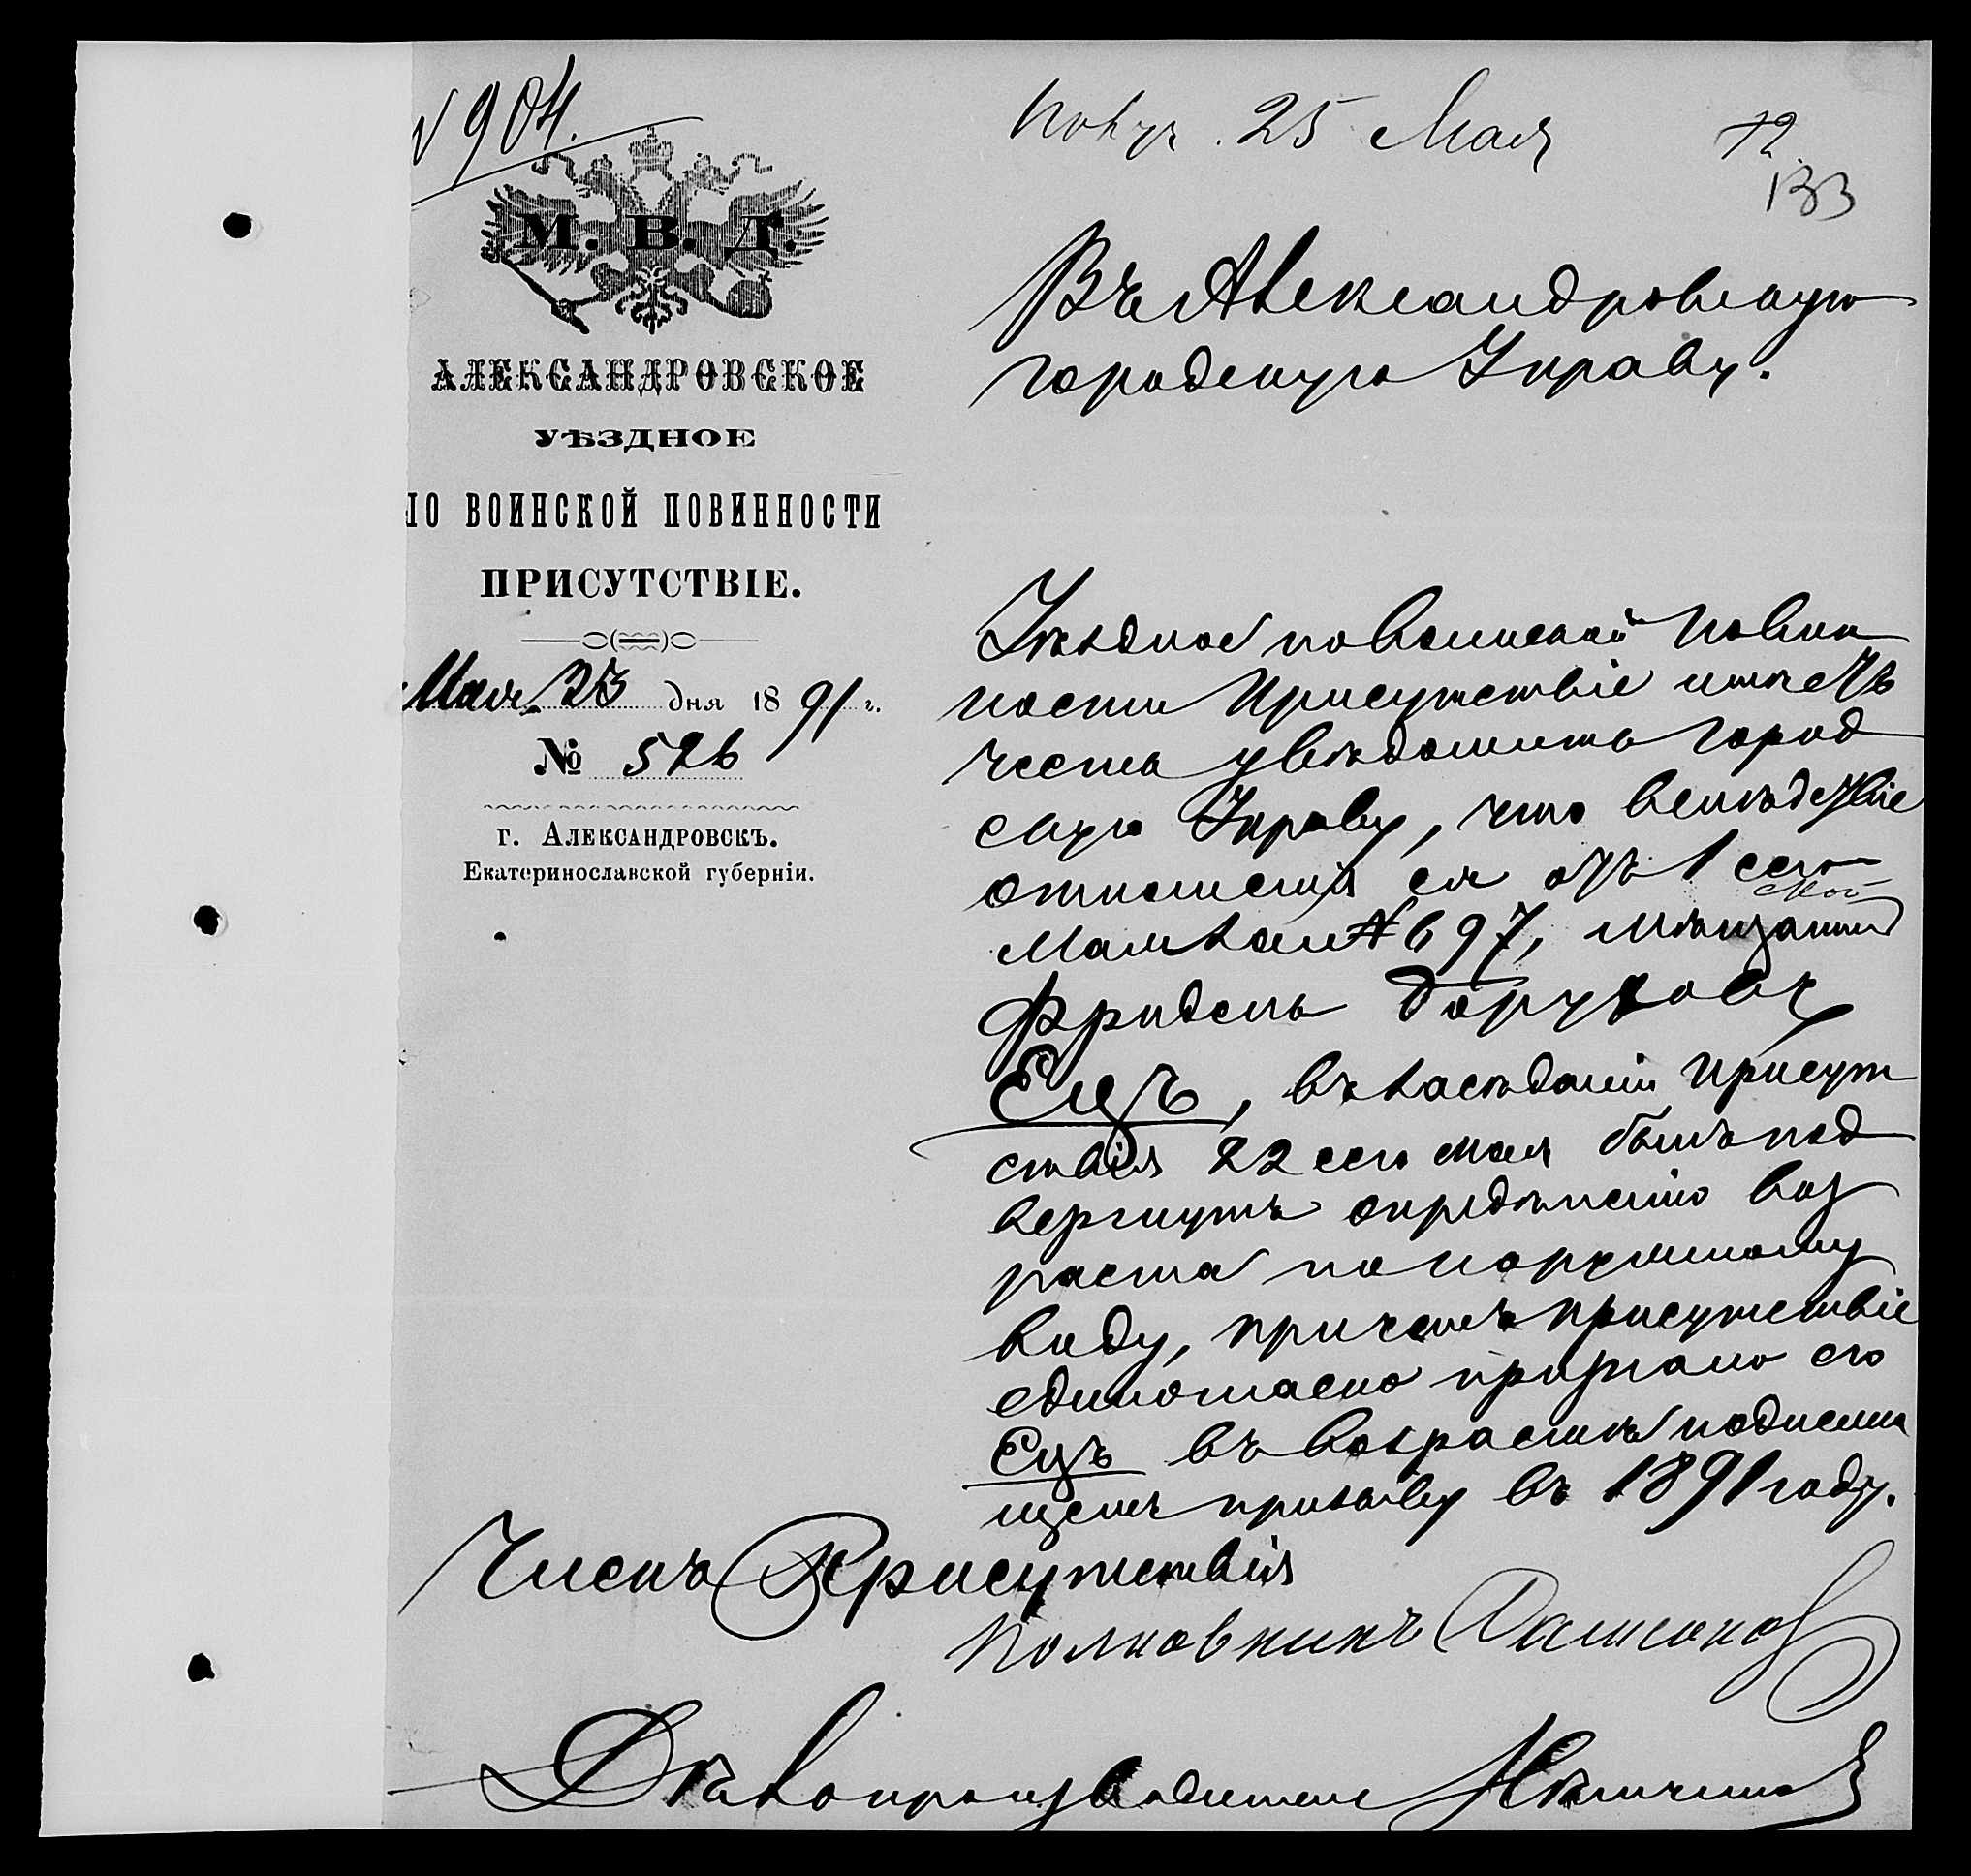 № 904.
Получ. 25 Мая
72.
133
М. В. Д.
АЛЕКСАНДРОВСКОЕ
УѢЗДНОЕ
ПО ВОИНСКОЙ ПОВИННОСТИ
ПРИСУТСТВІЕ.
Мая 23 дня 1891 г.
№ 526
г. Александровскъ.
Екатеринославской губерніи.
Въ Александровскую
городскую Управу.
Уѣздное по воинской повин
ности Присутствіе имѣетъ
честь увѣдомить Город
скую Управу, что вслѣдствіе
отношенія ея отъ 1 сего
Мая за № 697, мѣщанинъ
Фридель Боруховъ
Ецъ, въ засѣданіи Присут
ствія 22 сего мая былъ под
вергнутъ опредѣленію воз
раста по наружному
виду, причемъ присутствіе
единогласно признало его
Ецъ въ возрастѣ подлежа
щемъ призыву въ 1891 году.
Членъ Присутствія
Полковникъ
Дѣлопроизводитель